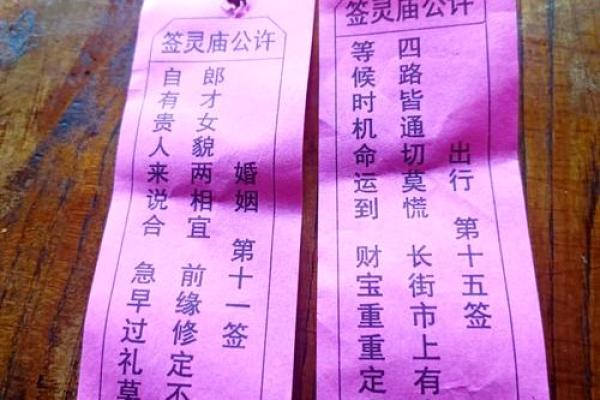 签灵庙公许
婚姻 第十一签
郎才女貌两相宜 前缘修定不
自有贵人来说合 急早过礼莫
签灵庙公许
出行 第十五签
四路皆通切莫慌 长街市上有
等候时机命运到 财宝重重定